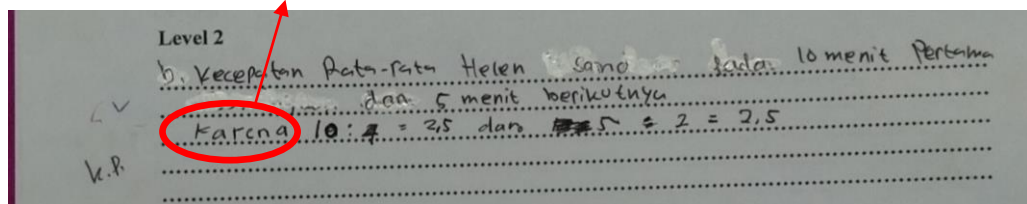 Level 2
b. Kecepatan Rata-rata Helen sama pada 10 menit Pertama
dan 5 menit berikutnya
Karena 10 : 4 = 2,5 dan 5 : 2 = 2,5
k.p.